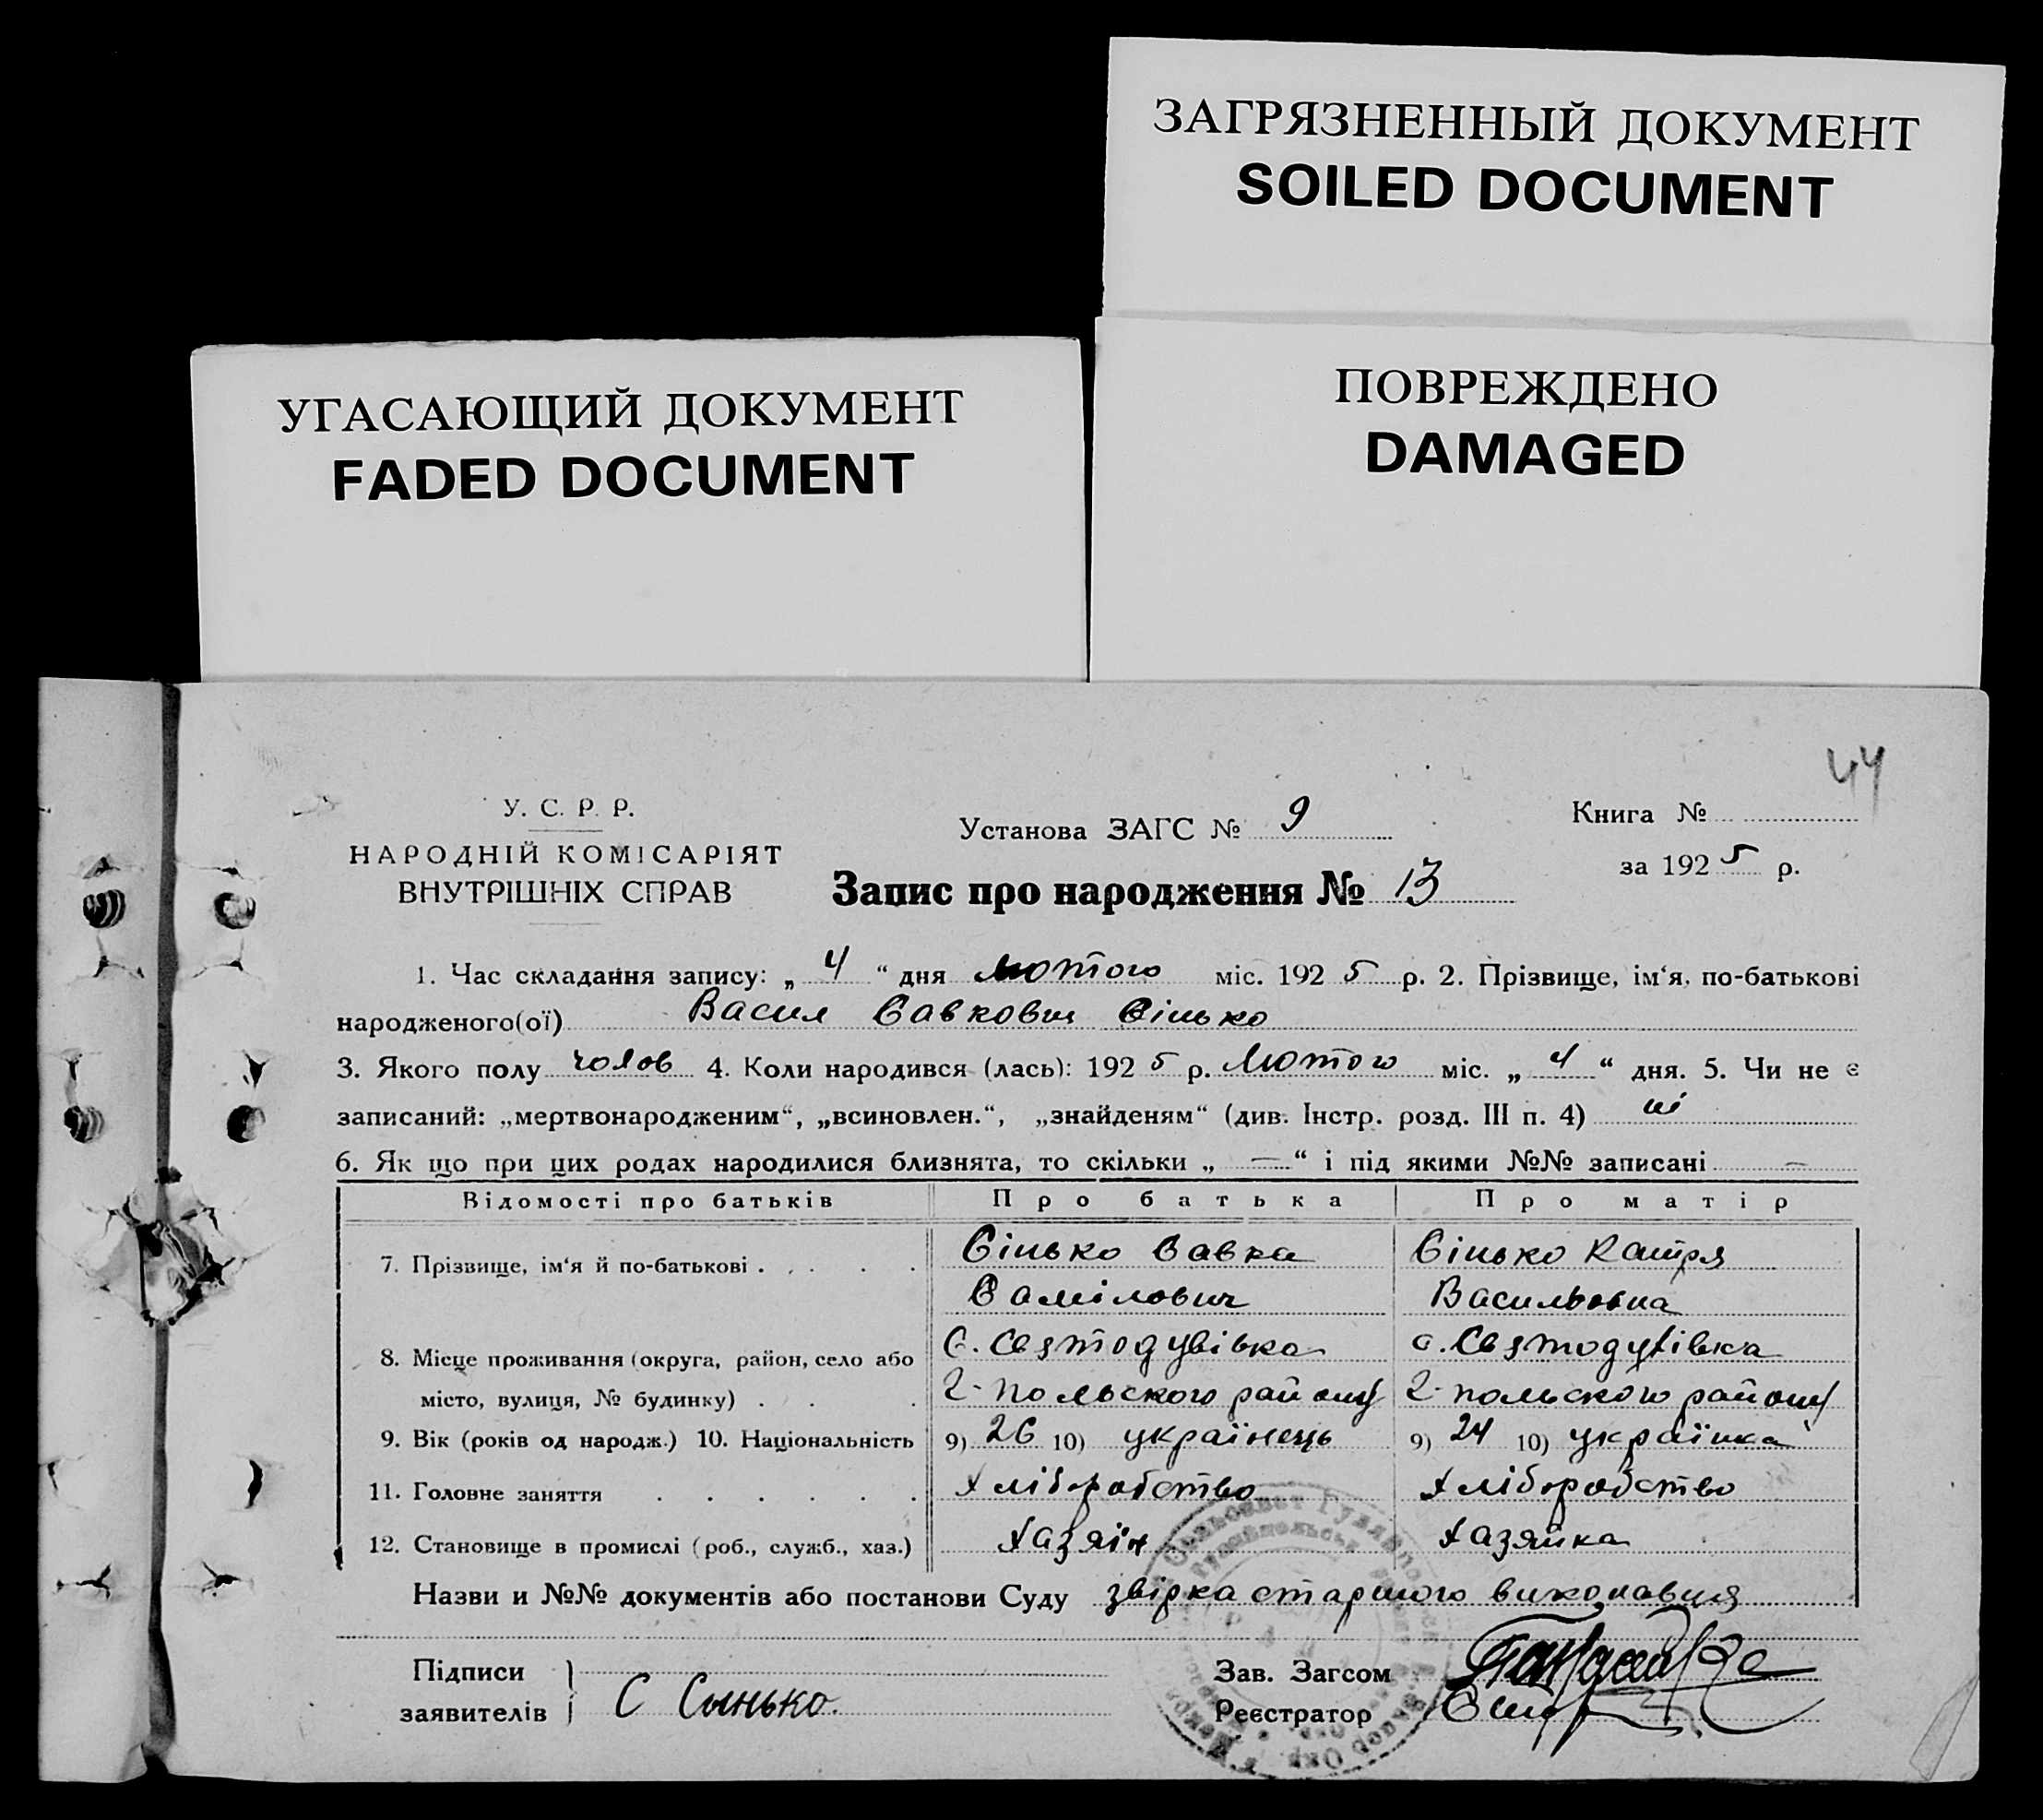 ЗАГРЯЗНЕННЫЙ ДОКУМЕНТ
SOILED DOCUMENT
УГАСАЮЩИЙ ДОКУМЕНТ
FADED DOCUMENT
ПОВРЕЖДЕНО
DAMAGED
44
У. С. Р. Р.
НАРОДНІЙ КОМІСАРІЯТ
ВНУТРІШНІХ СПРАВ
Установа ЗАГС № 9
Книга №
за 1925 р.
Запис про народження № 13
1. Час складання запису: „ 4 “ дня лютого міс. 1925 р. 2. Прізвище, ім‘я, по-батькові
народженого(ої) Васил Савкович Сінько
3. Якого полу чолов 4. Коли народився (лась): 1925 р. Лютого міс. „ 4 “ дня. 5. Чи не є
записаний: „мертвонародженим“, „всиновлен.“, „знайденям“ (див. Інстр. розд. III п. 4) ні
6. Як що при цих родах народилися близнята, то скільки „ — “ і під якими №№ записані —
Відомості про батьків Про батька Про матір
7. Прізвище, ім‘я й по-батькові . . . . Сінько Савка Сінько Катря
Самілович Васильовна
8. Місце проживання (округа, район, село або с. Святодухівка с. Святодухівка
місто, вулиця, № будинку) . . . Г-польского району Г-польского району
9. Вік (років од народж.) 10. Національність 9) 26 10) українець 9) 24 10) українка
11. Головне заняття . . . . . . Хліборобство Хліборобство
12. Становище в промислі (роб., служб., хаз.) Хазяїн Хазяйка
Назви и №№ документів або постанови Суду звірка старшого виконавця
Підписи
заявителів С Сынько.
Зав. Загсом
Реєстратор